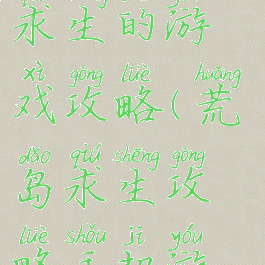 求生的游
xì gōng lüè huāng
戏攻略(荒
dǎo qiú shēng gōng
岛求生攻
lüè shǒu jī yóu
略手机游